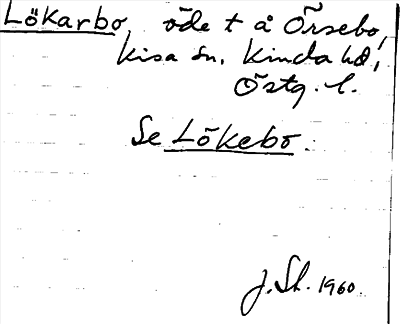 Lökarbo, öde t å Örsebo,
Kisa sn, Kinda hd,
Östg. l.
Se Lökebo.
J. Sh. 1960.